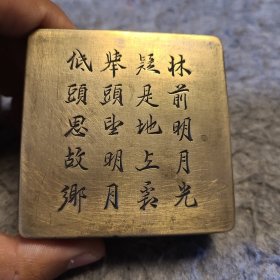 林前明月光
疑是地上霜
舉頭望明月
低頭思故鄉